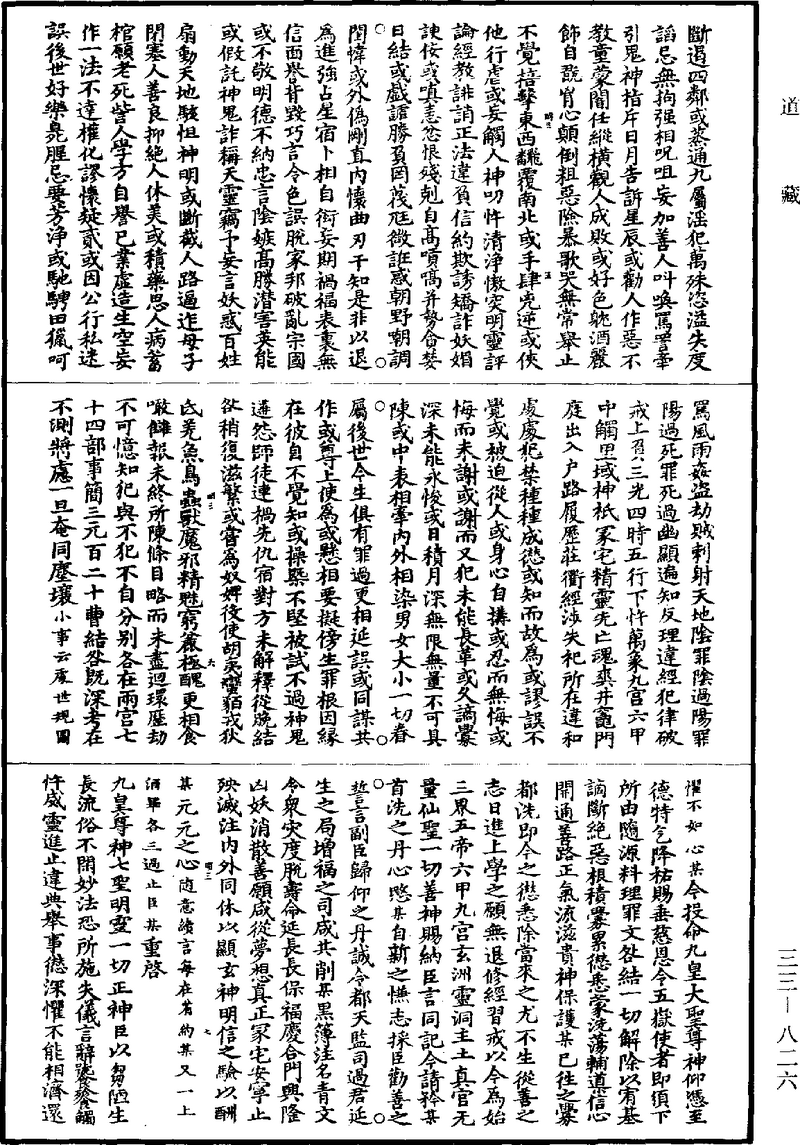 道藏
斷遏四鄰或蒸通九屬淫犯萬殊恣溢失度
謟忌無拘强相呪咀妄加善人呌喚罵詈牽
引鬼神指斥日月告訴星辰或勸人作惡不
教童蒙闇任縱橫觀人成敗或好色躭酒嚴
飾自翫胷心顛倒粗惡險暴歌哭無常舉止
不覺掊擊東西飜覆南北或手肆兇逆或俠
他行虐或妄觸人神叨忤清淨慠突明靈評
論經教誹誚正法違負信約欺誘矯詐妖媚
諫佞或嗔恚忿恨殘剋自高并勢會婪
日結或戲謔勝負因尫微誑惑朝野嘲調
閨幃或外偽剛直内懷曲刃干知是非以退
為進強占星宿卜相自衒妄期禍福表裏無
信面譽背毀巧言令色誤脫家邦破亂宗國
或不敬明德不納忠言陰嫉高勝潜害英能
或假託神鬼詐稱天靈竊下妄言妖惑百姓
扇動天地駭怛神明或斷截人路逼迮母子
閉塞人善良抑絕人休美或積藥思人病蓄
棺願老死訾人學方自譽已業虛造生空妄
作一法不達權化謬懷疑貳或因公行私迷
誤後世好樂臭腥忌要芳淨或馳騁田獵呵
罵風雨姦盜劫賊刺射天地陰罪陰過陽罪
陽過死罪死過幽顯遍知反理違經犯律破
戒上負三光四時五行下忤萬象九宮六甲
中觸里域神祇冢宅精靈先亡魂爽井竈門
庭出入户路履歷莊衢經涉失祀所在違和
處處犯禁種種成愆或知而故為或謬誤不
覺或被迫從人或身心自搆或忍而無悔或
悔而未謝或謝而又犯未能長革或久謫釁
深未能永悛或日積月深無限無量不可具
陳或中表相牽内外相染男女大小一切眷
屬後世今生俱有罪過更相延誤或同謀共
作或尊上使為或懸相要擬傍生罪根因緣
在彼自不覺知或操槩不堅被試不過神鬼
遘怨師徒連禍先仇宿對方未解釋從晚結
欲稍復滋繁或嘗為奴婢役使胡夷蠻貊戎狄
氐羌魚鳥蟲獸魔邪精魅窮簽極醜更相食
噉讎報未終所陳條目略而未盡迴環歷劫
不可憶知犯與不犯不自分別各在兩宮七
十四部事簡三元百二十曹結咎既深考在
不測將慮一旦奄同塵壤小事云慮世規圖
懼不如心某今投命九皇大聖尊神仰慿至
德特乞降祐賜垂慈恩令五嶽使者即須下
所由隨源料理罪文咎結一切解除以宥基
謫斷絕惡根積釁累愆悉蒙洗蕩輔道信心
開通善路正氣流滋貴神保護某已往之釁
都洗即今之愆悉除當來之尤不生從善之
志日進上學之願無退修經習戒以今為始
三界五帝六甲九宮玄洲靈洞主土真官无
量仙聖一切善神賜納臣言同記今請矜某
首洗之丹心愍某自新之憮志採臣勸善之
誓言副臣歸仰之丹誠令都天監司過君延
生之局增福之司咸共削某黑簿注名青文
令衆灾度脫壽命延長長保福慶合門興隆
凶妖消散善願咸從夢想真正冢宅安寧止
殃滅注内外同休以顯玄神明信之驗以酬
某元元之心隨意讀言每在著約某又一上
酒畢各三過止臣某重啓
九皇尊神七聖明靈一切正神臣以芻陋生
長流俗不閑妙法恐所施失儀言辭饕飱觸
忤威靈進止違典舉事愆深懼不能相濟還
三三—八二六